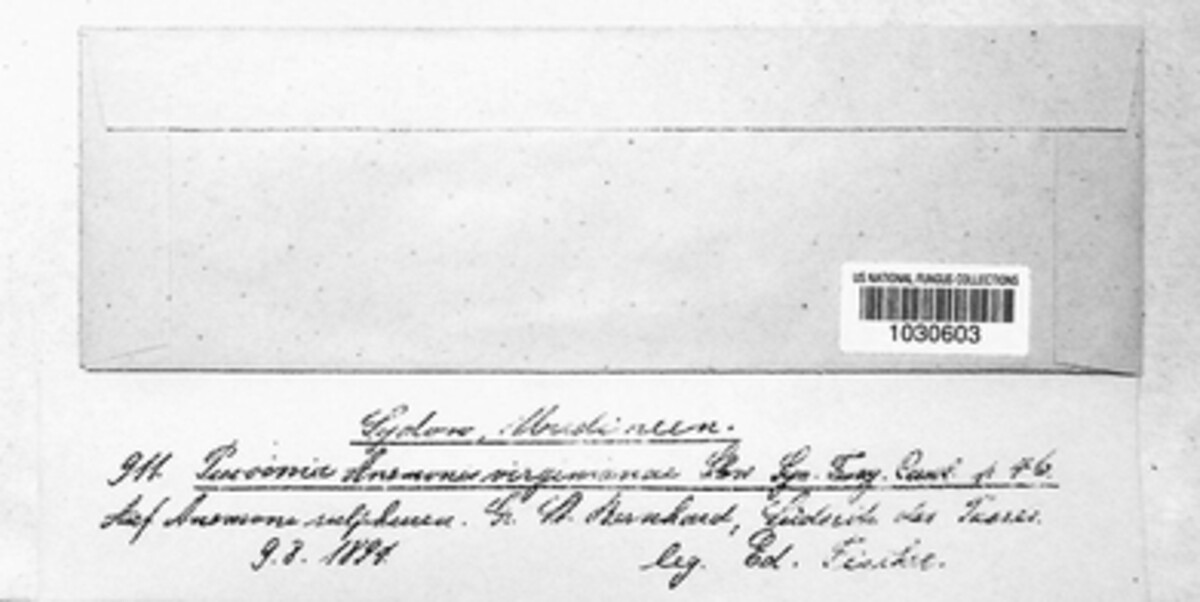 US NATIONAL FUNGUS COLLECTIONS
1030603
Sydow, Uredineen.
911. Puccinia Anemones virginianae Schw. Syn. Fung. Carol. p. 46.
Auf Anemone sulphurea. Gr. St. Bernhard, Südseite des Passes.
9. 8. 1894 leg. Ed. Fischer.